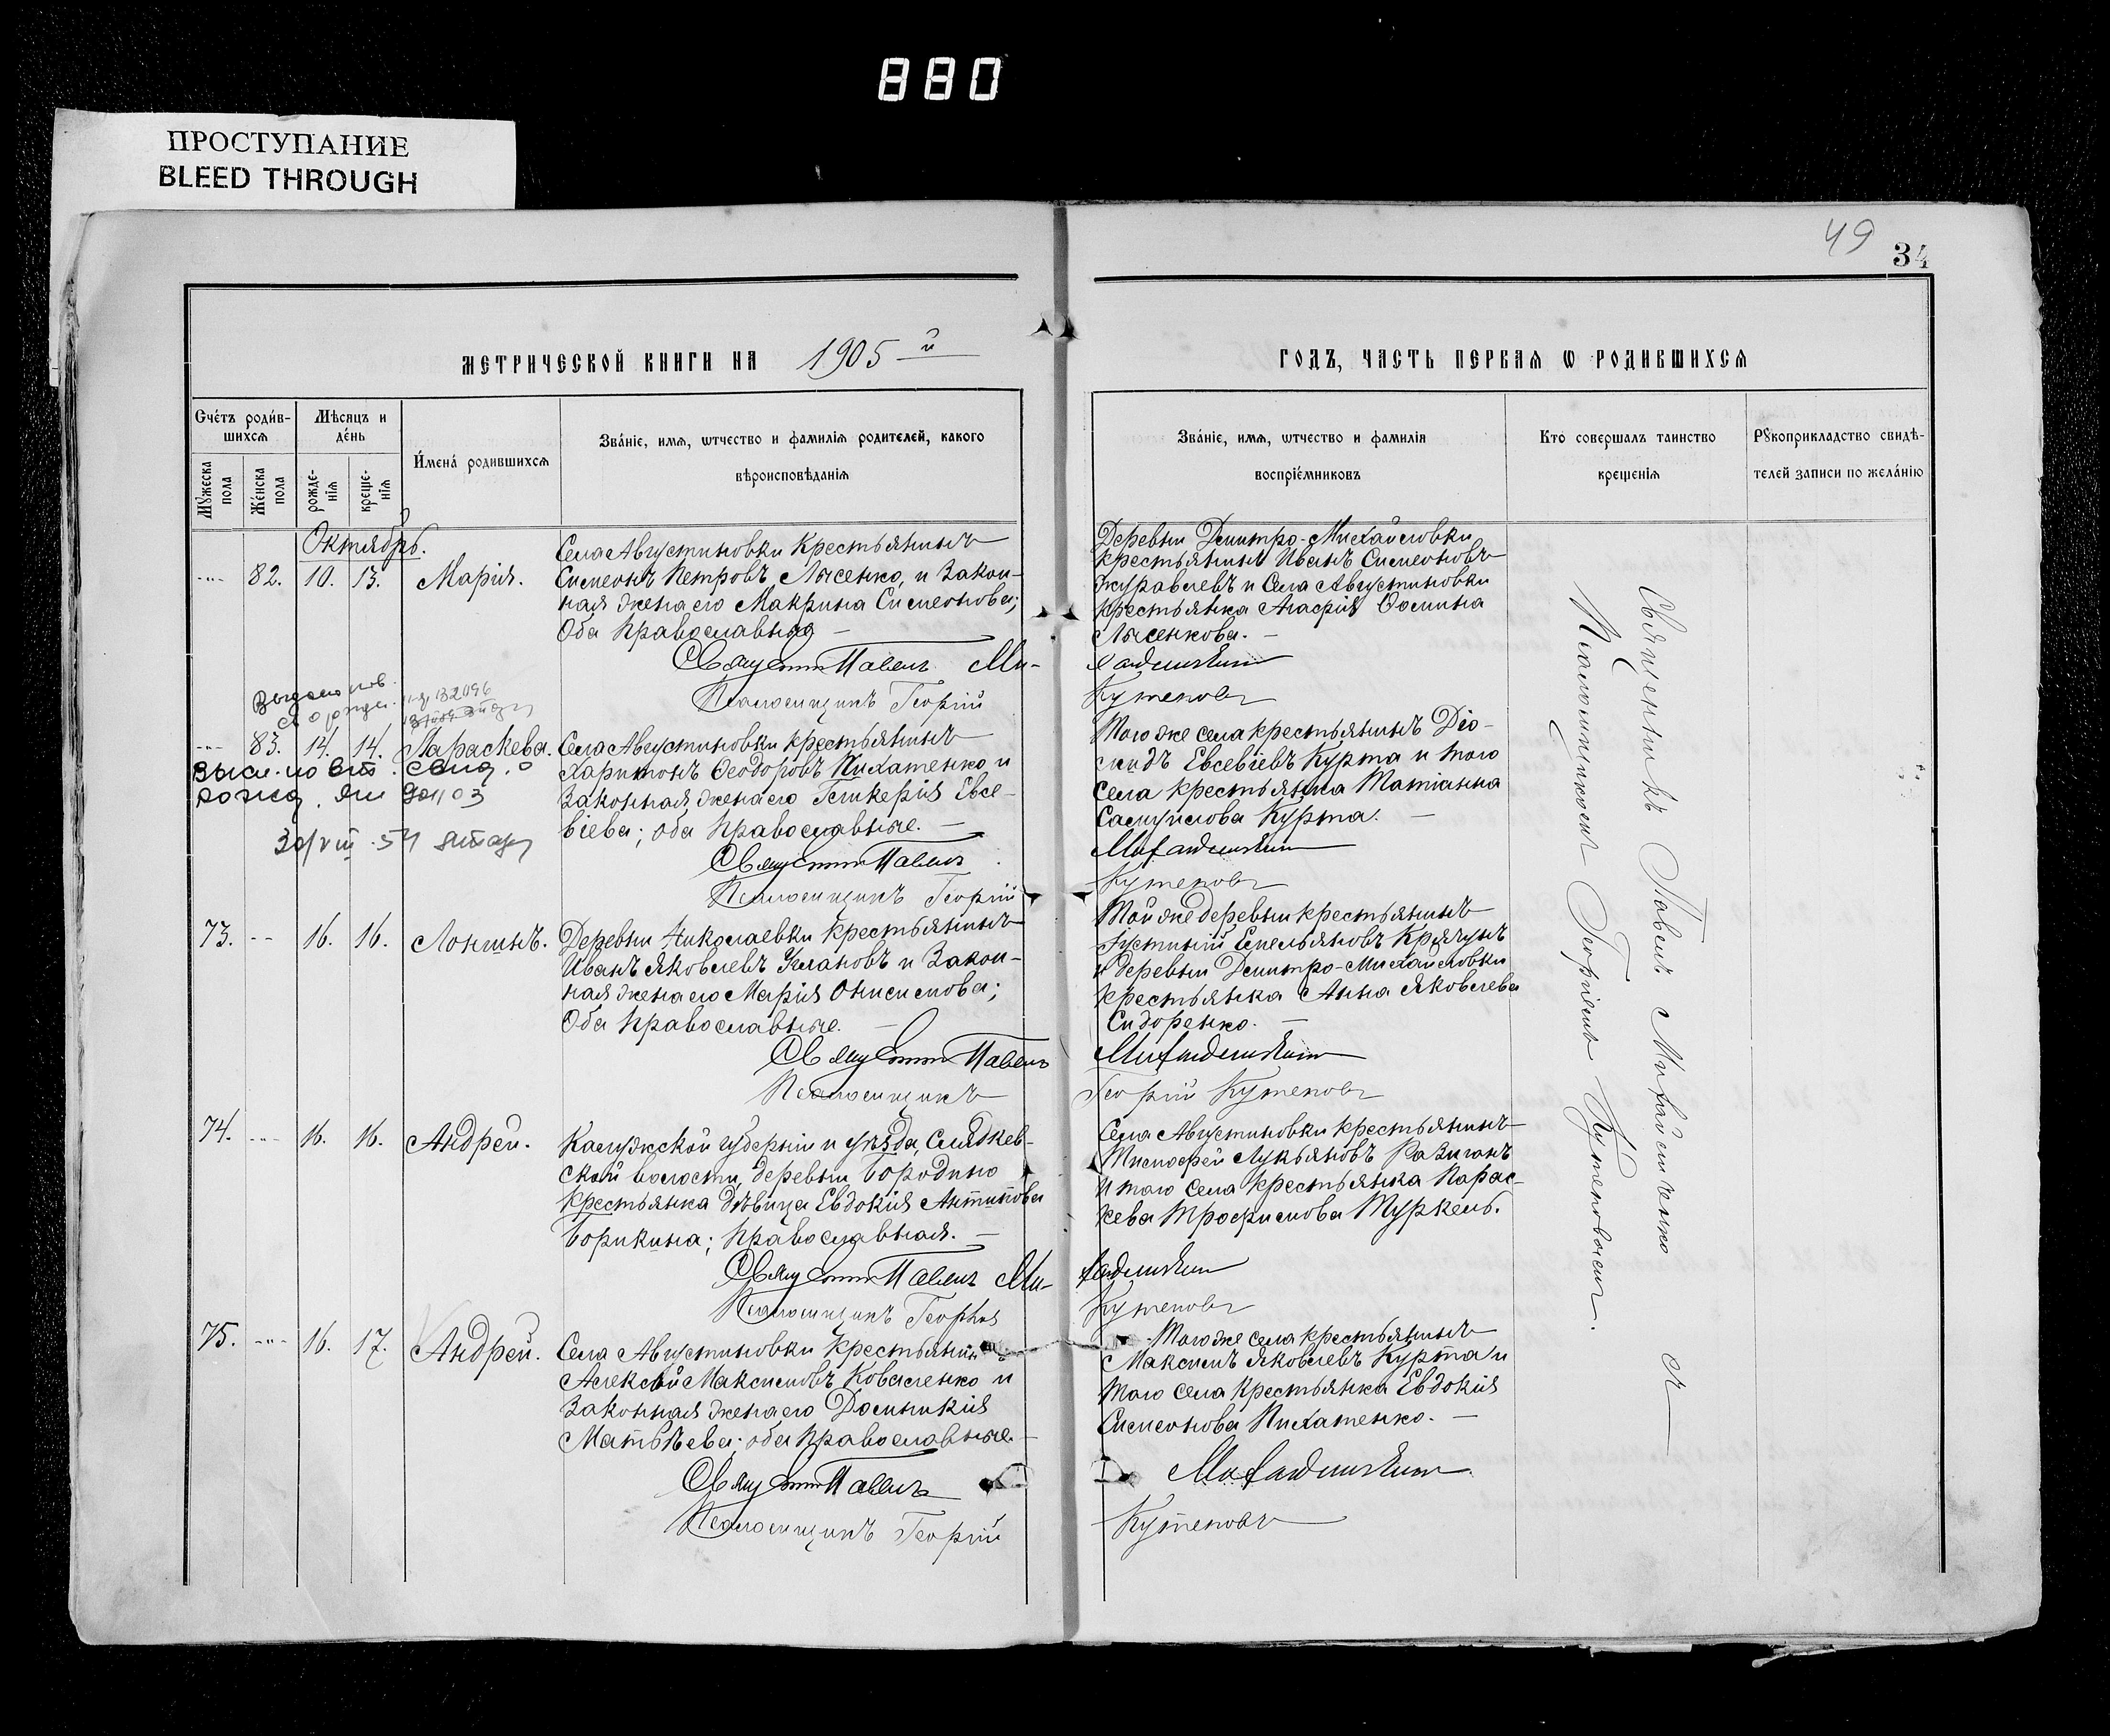 880
ПРОСТУПАНИЕ
BLEED THROUGH
49
34
МЕТРИЧЕСКОЙ КНИГИ НА 1905 й
ГОДЪ, ЧАСТЬ ПЕРВАѦ Ѡ РОДИВШИХСѦ
Счетъ родив-
шихсѧ
Мѣсяцъ и
день
Мꙋжеска
пола
Женска
пола
рожде-
нїѧ
креще-
нїѧ
Имена родившихсѧ
Званїе, имѧ, ѿчество и фамилїѧ родителей, какого
вѣроисповѣданїѧ
Званїе, имѧ, ѿчество и фамилїѧ
воспрїемниковъ
Кто совершалъ таинство
крещенїѧ
Рꙋкоприкладство свидѣ-
телей записи по желанїю
Октябрь.
82. 10. 13. Марія.
Села Августиновки крестьянинъ
Симеонъ Петровъ Лысенко, и закон-
ная жена его Макрина Симеонова;
Оба православные
Священникъ Павелъ Ми-
Псаломщикъ Георгій
Деревни Дмитро-Михайловки
крестьянинъ Иванъ Симеоновъ
Журавлевъ и Села Августиновки
крестьянка Агафія Фомина
Лысенкова.
Кутеповъ
83. 14. 14. Параскева.
Села Августиновки крестьянинъ
Харитонъ Феодоровъ Пихатенко и
законная жена его Гликерія Евсе-
віева; оба православные.
Священникъ Павелъ
Псаломщикъ Георгій
Того же села крестьянинъ Діо-
мидъ Евсевіевъ Курта и того
села крестьянка Татіанна
Самуилова Курта.
Кутеповъ
73. 16. 16. Логинъ.
Деревни Николаевки крестьянинъ
Иванъ Яковлевъ Улановъ и закон-
ная жена его Марія Онисимова;
Оба православные.
Священникъ Павелъ
Псаломщикъ
Той же деревни крестьянинъ
Іустиній Емельяновъ
и деревни Дмитро-Михайловки
крестьянка Анна Яковлева
Сидоренко.
Георгій Кутеповъ
74. 16. 16. Андрей.
Калужской губерніи и уѣзда,
ской волости, деревни Бородино
крестьянка дѣвица Евдокія Антипова
Борикина; православная.
Священникъ Павелъ Ми-
Псаломщикъ Георгій
Села Августиновки крестьянинъ
Тимофей Лукьяновъ
и того села крестьянка Парас-
кева Трофимова Туркень.
Кутеповъ
75. 16. 17. Андрей.
Села Августиновки крестьянинъ
Алексѣй Максимовъ Коваленко и
законная жена его Домникія
Матвѣева; оба православные.
Священникъ Павелъ
Псаломщикъ Георгій
Того же села крестьянинъ
Максимъ Яковлевъ Курта и
того села крестьянка Евдокія
Симеонова Пихатенко.
Кутеповъ
Священникъ Павелъ
Псаломщикомъ Георгіемъ Кутеповымъ.